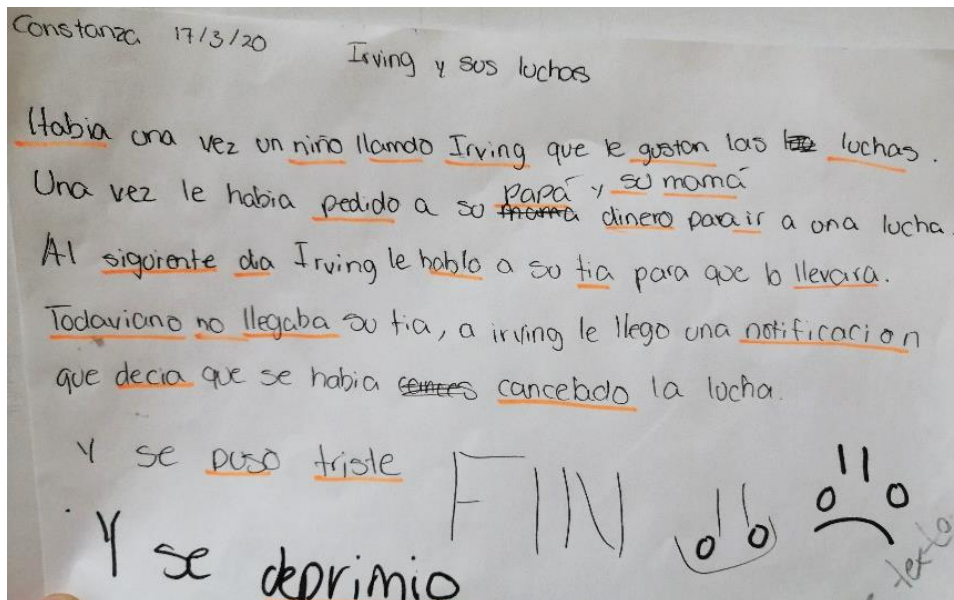 Constanza 17/3/20
Irving y sus luchas
Habia una vez un niño llamdo Irving que le gustan las luchas.
Una vez le habia pedido a su papá y su mamá dinero para ir a una lucha.
Al siguiente dia Irving le hablo a su tia para que lo llevara.
Todaviano no llegaba su tia, a irving le llego una notificacion
que decia que se habia cancelado la lucha.
Y se puso triste
FIN
Y se deprimio
texto